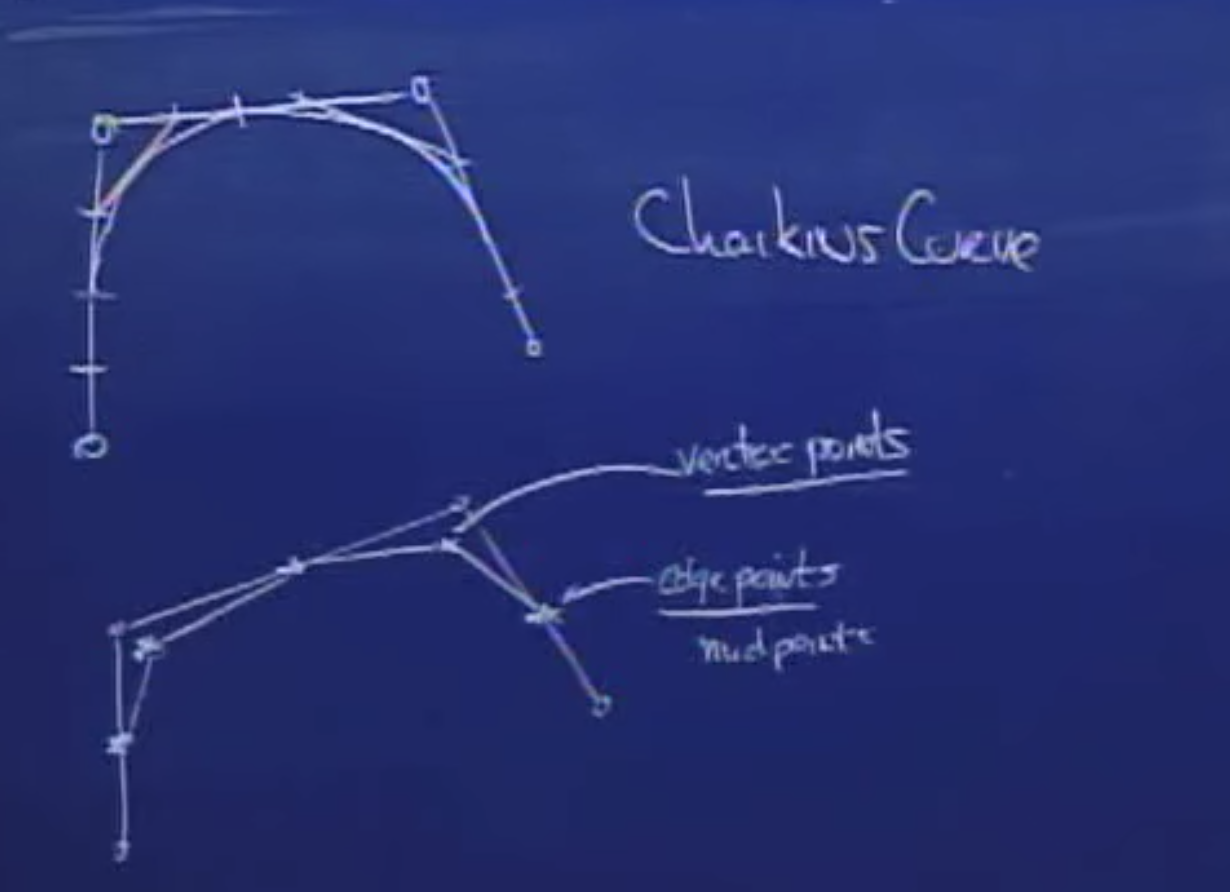 Chaikins Curve
vertex points
edge points
midpoints